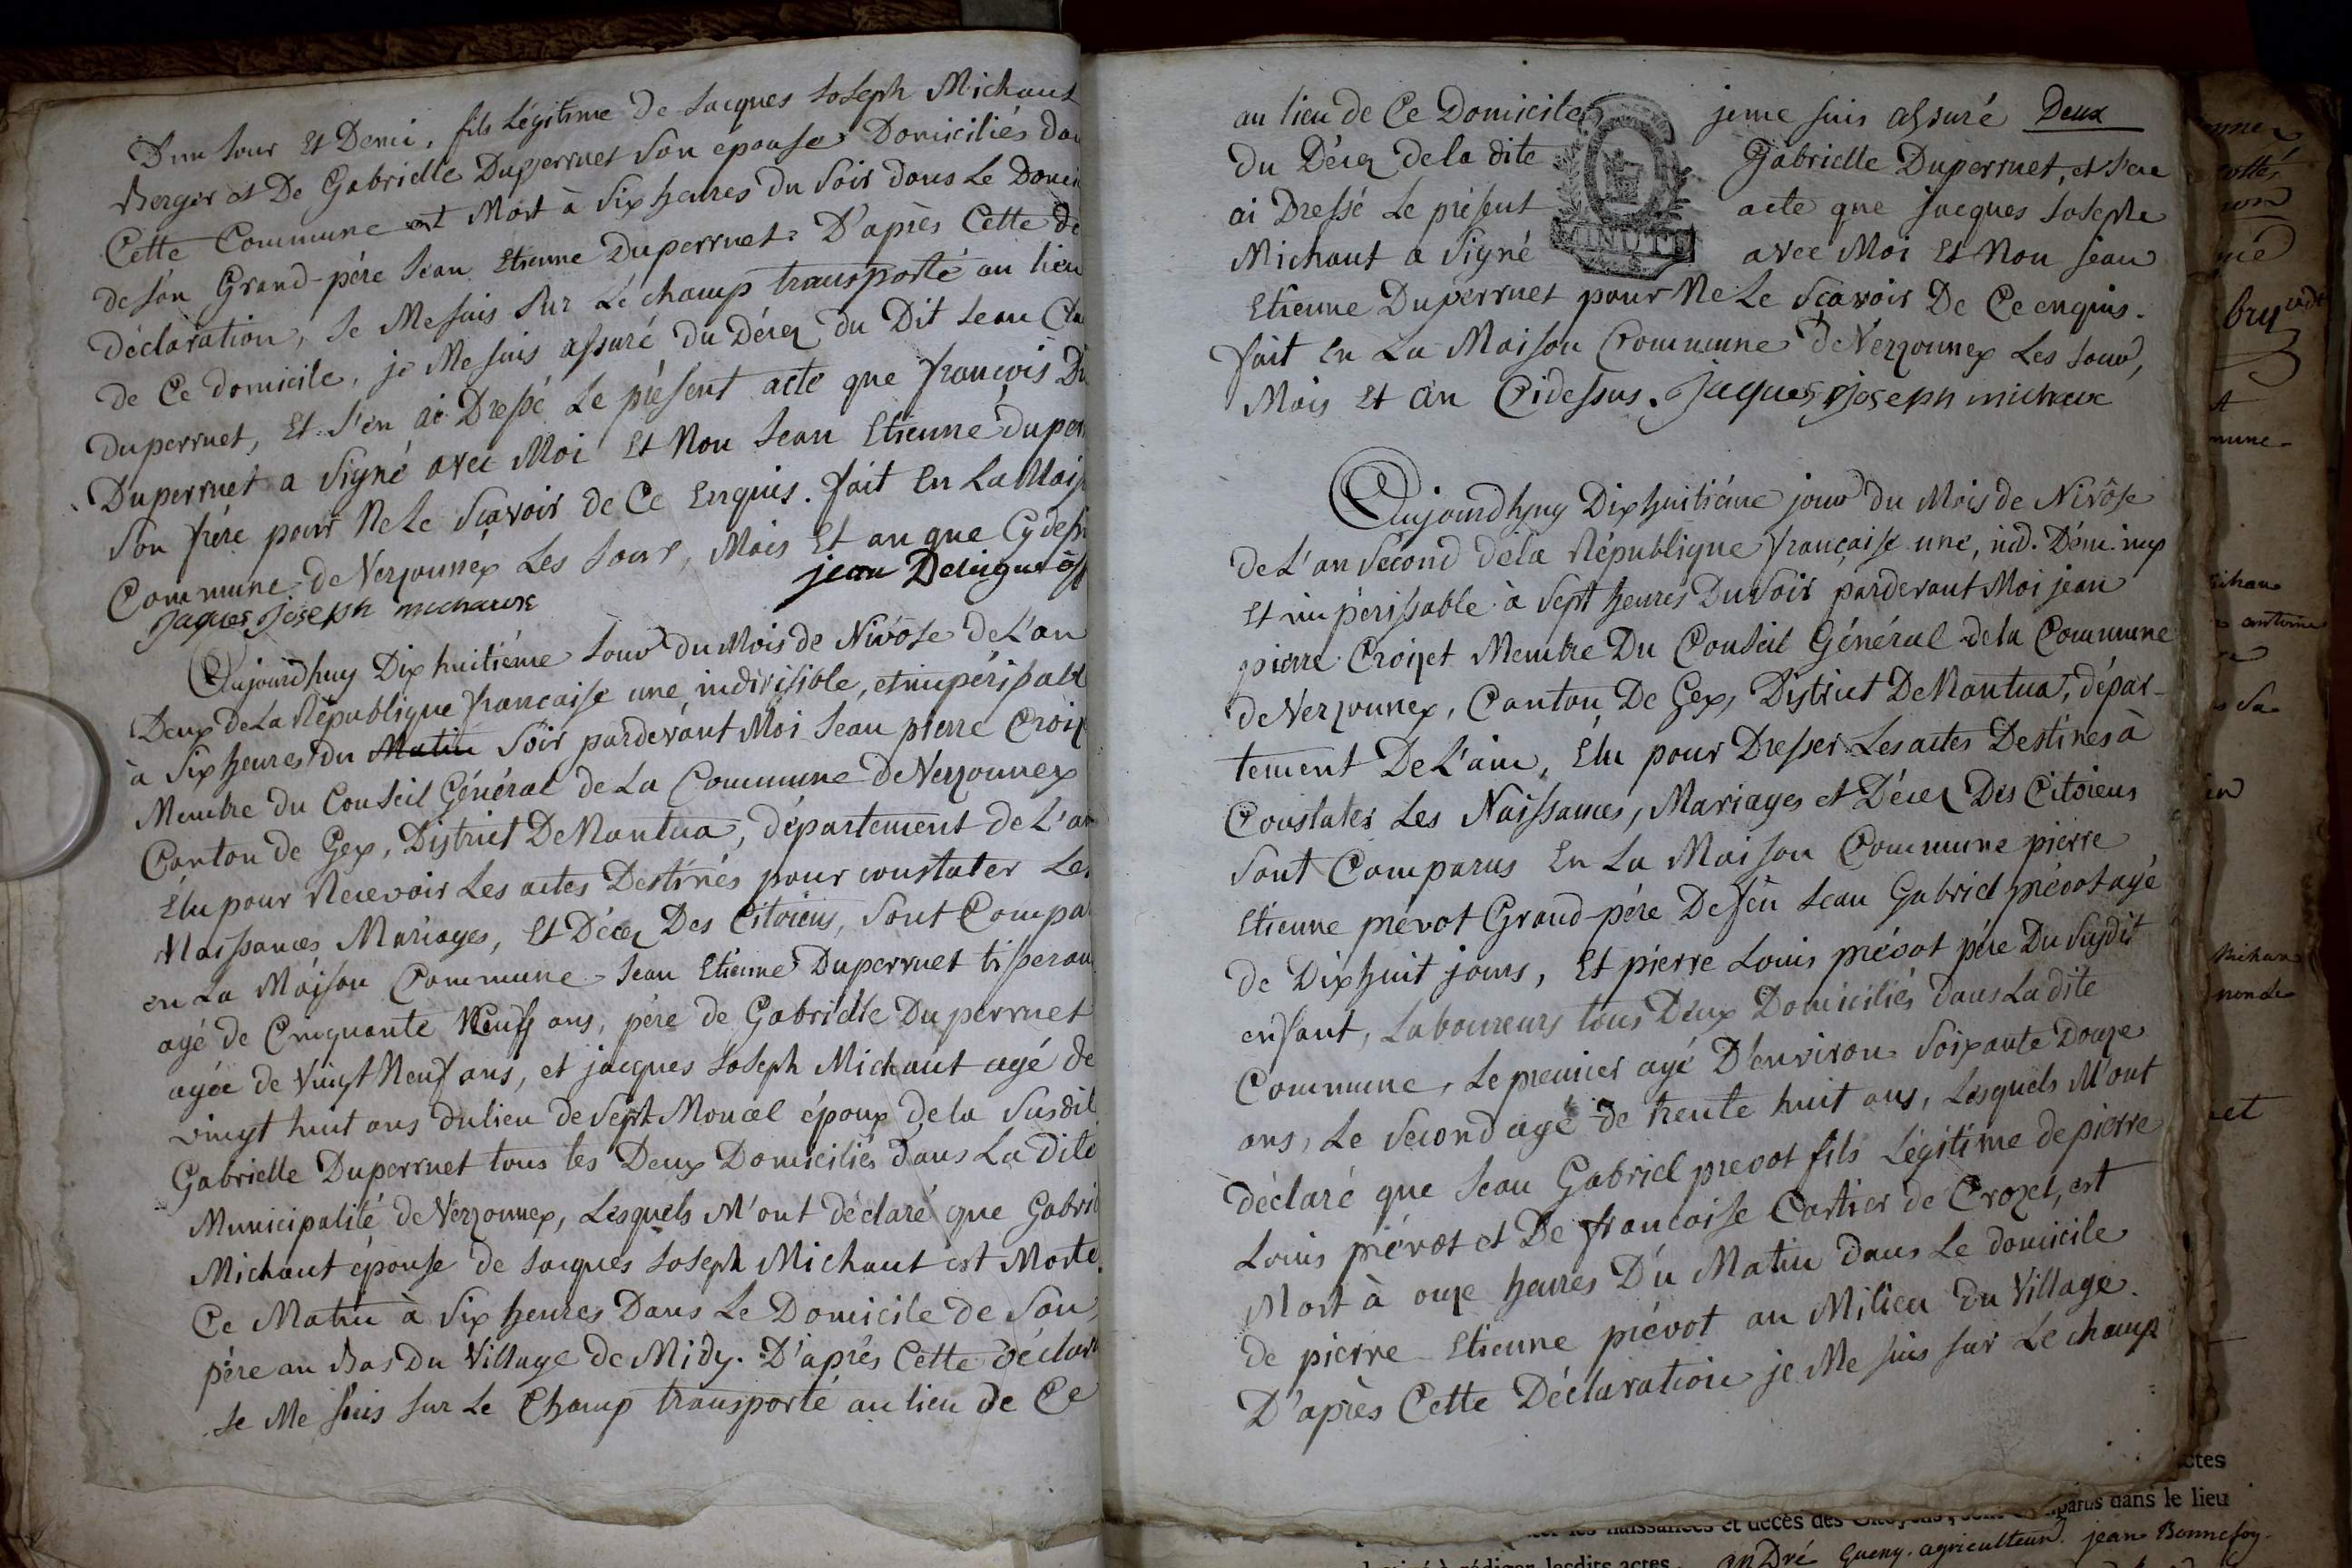 D'un Jour Et Demi, fils Légitime De Jacques Joseph Michaut
Berger et De Gabrielle Duperruet Son épouse Domiciliés dan
Cette Commune est Mort à Six heures du Soir dans Le Domi
de son Grand-père Jean Etienne Duperruet. D'après Cette de
déclaration, Je Me suis Sur Le champ transporté au lieu
de Ce domicile, je Me suis assuré du Décez du Dit Jean Cla
Duperruet, Et J'en ai Dressé Le présent acte que françois Du
Duperruet a Signé avec Moi Et Non Jean Etienne duper
Son frére pour Ne Le Sçavoir de Ce Enquis. fait En La Mais
Commune de Verzonnex Les Jour, Mois Et an que Cy dess
Jaques Joseph michaux jean
Aujourdhuy Dix huitiéme Jour du Mois de Nivôse de L'an
Deux de La République française une indivisible, et impérissabl
à Six heures du Matin Soir pardevant Moi Jean pierre Croiz
Membre du Conseil Général de La Commune de Verzonnex
Canton de Gex, District De Nantua, département de L'ai
Élu pour Recevoir Les actes Destinés pour constater Les
Naissances Mariages, Et Décez Des Citoiens, Sont Compar
en La Maison Commune Jean Etienne Duperruet tisseran
agé de Cinquante Neuf ans, pére de Gabrielle Duperruet
agée de Vingt Neuf ans, et jacques Joseph Michaut agé de
vingt huit ans du lieu de Sept Moncel époux de la Susdit
Gabrielle Duperruet tous les Deux Domiciliés dans La dite
Municipalité de Verzonnex, Lesquels M'ont déclaré que Gabri
Michaut épouse de Jacques Joseph Michaut est Morte
Ce Matin à Six heures Dans Le Domicile de Son
pére au Bas du Village de Midy. D'aprés Cette déclar
Je Me suis sur Le Champ transporté au lieu de Ce
au lieu de Ce Domicile je me suis assuré Deux
du Décez de la dite Gabrielle Duperruet, et J'en
ai Dressé Le présent acte que Jacques Joseph
Michaut a Signé avec Moi Et Non jean
MINUTE
Etienne Duperruet pour Ne Le Sçavoir De Ce enquis.
fait En La Maison Commune de Verzonnex Les Jour,
Mois Et an Cidessus. Jaques Joseph michaux
Aujourdhuy Dixhuitiéme jour du Mois de Nivôse
de L'an Second de la République française une, ind.
Et impérissable à Sept heures Du Soir pardevant Moi jean
pierre Croizet Membre Du Conseil Général de la Commune
de Verzonnex, Canton De Gex, District De Nantua, dépar-
tement De L'ain, Élu pour Dresser Les actes Destinés à
Constater Les Naissances, Mariages et Décez Des Citoiens
Sont Comparus En La Maison Commune pierre
Etienne prévot Grand-pére De feu Jean Gabriel prévot agé
de Dix huit jours, Et pierre Louis prévot pére Du Susdit
enfant, Laboureurs tous Deux Domiciliés dans La dite
Commune, Le premier agé D'environ Soixante Douze
ans, Le Second agé de trente huit ans, Lesquels M'ont
déclaré que Jean Gabriel prevot fils Légitime de pierre
Louis prévot et De francoise Cartier de Crozet, est
Mort à onze heures Du Matin dans Le domicile
de pierre Etienne prévot au Milieu du Village.
D'après Cette Déclaration je Me suis sur Le champ
ctes
les naissances et décès des
parus dans le lieu
à rédiger lesdits actes. André agriculteur. jean Bonnefoy.